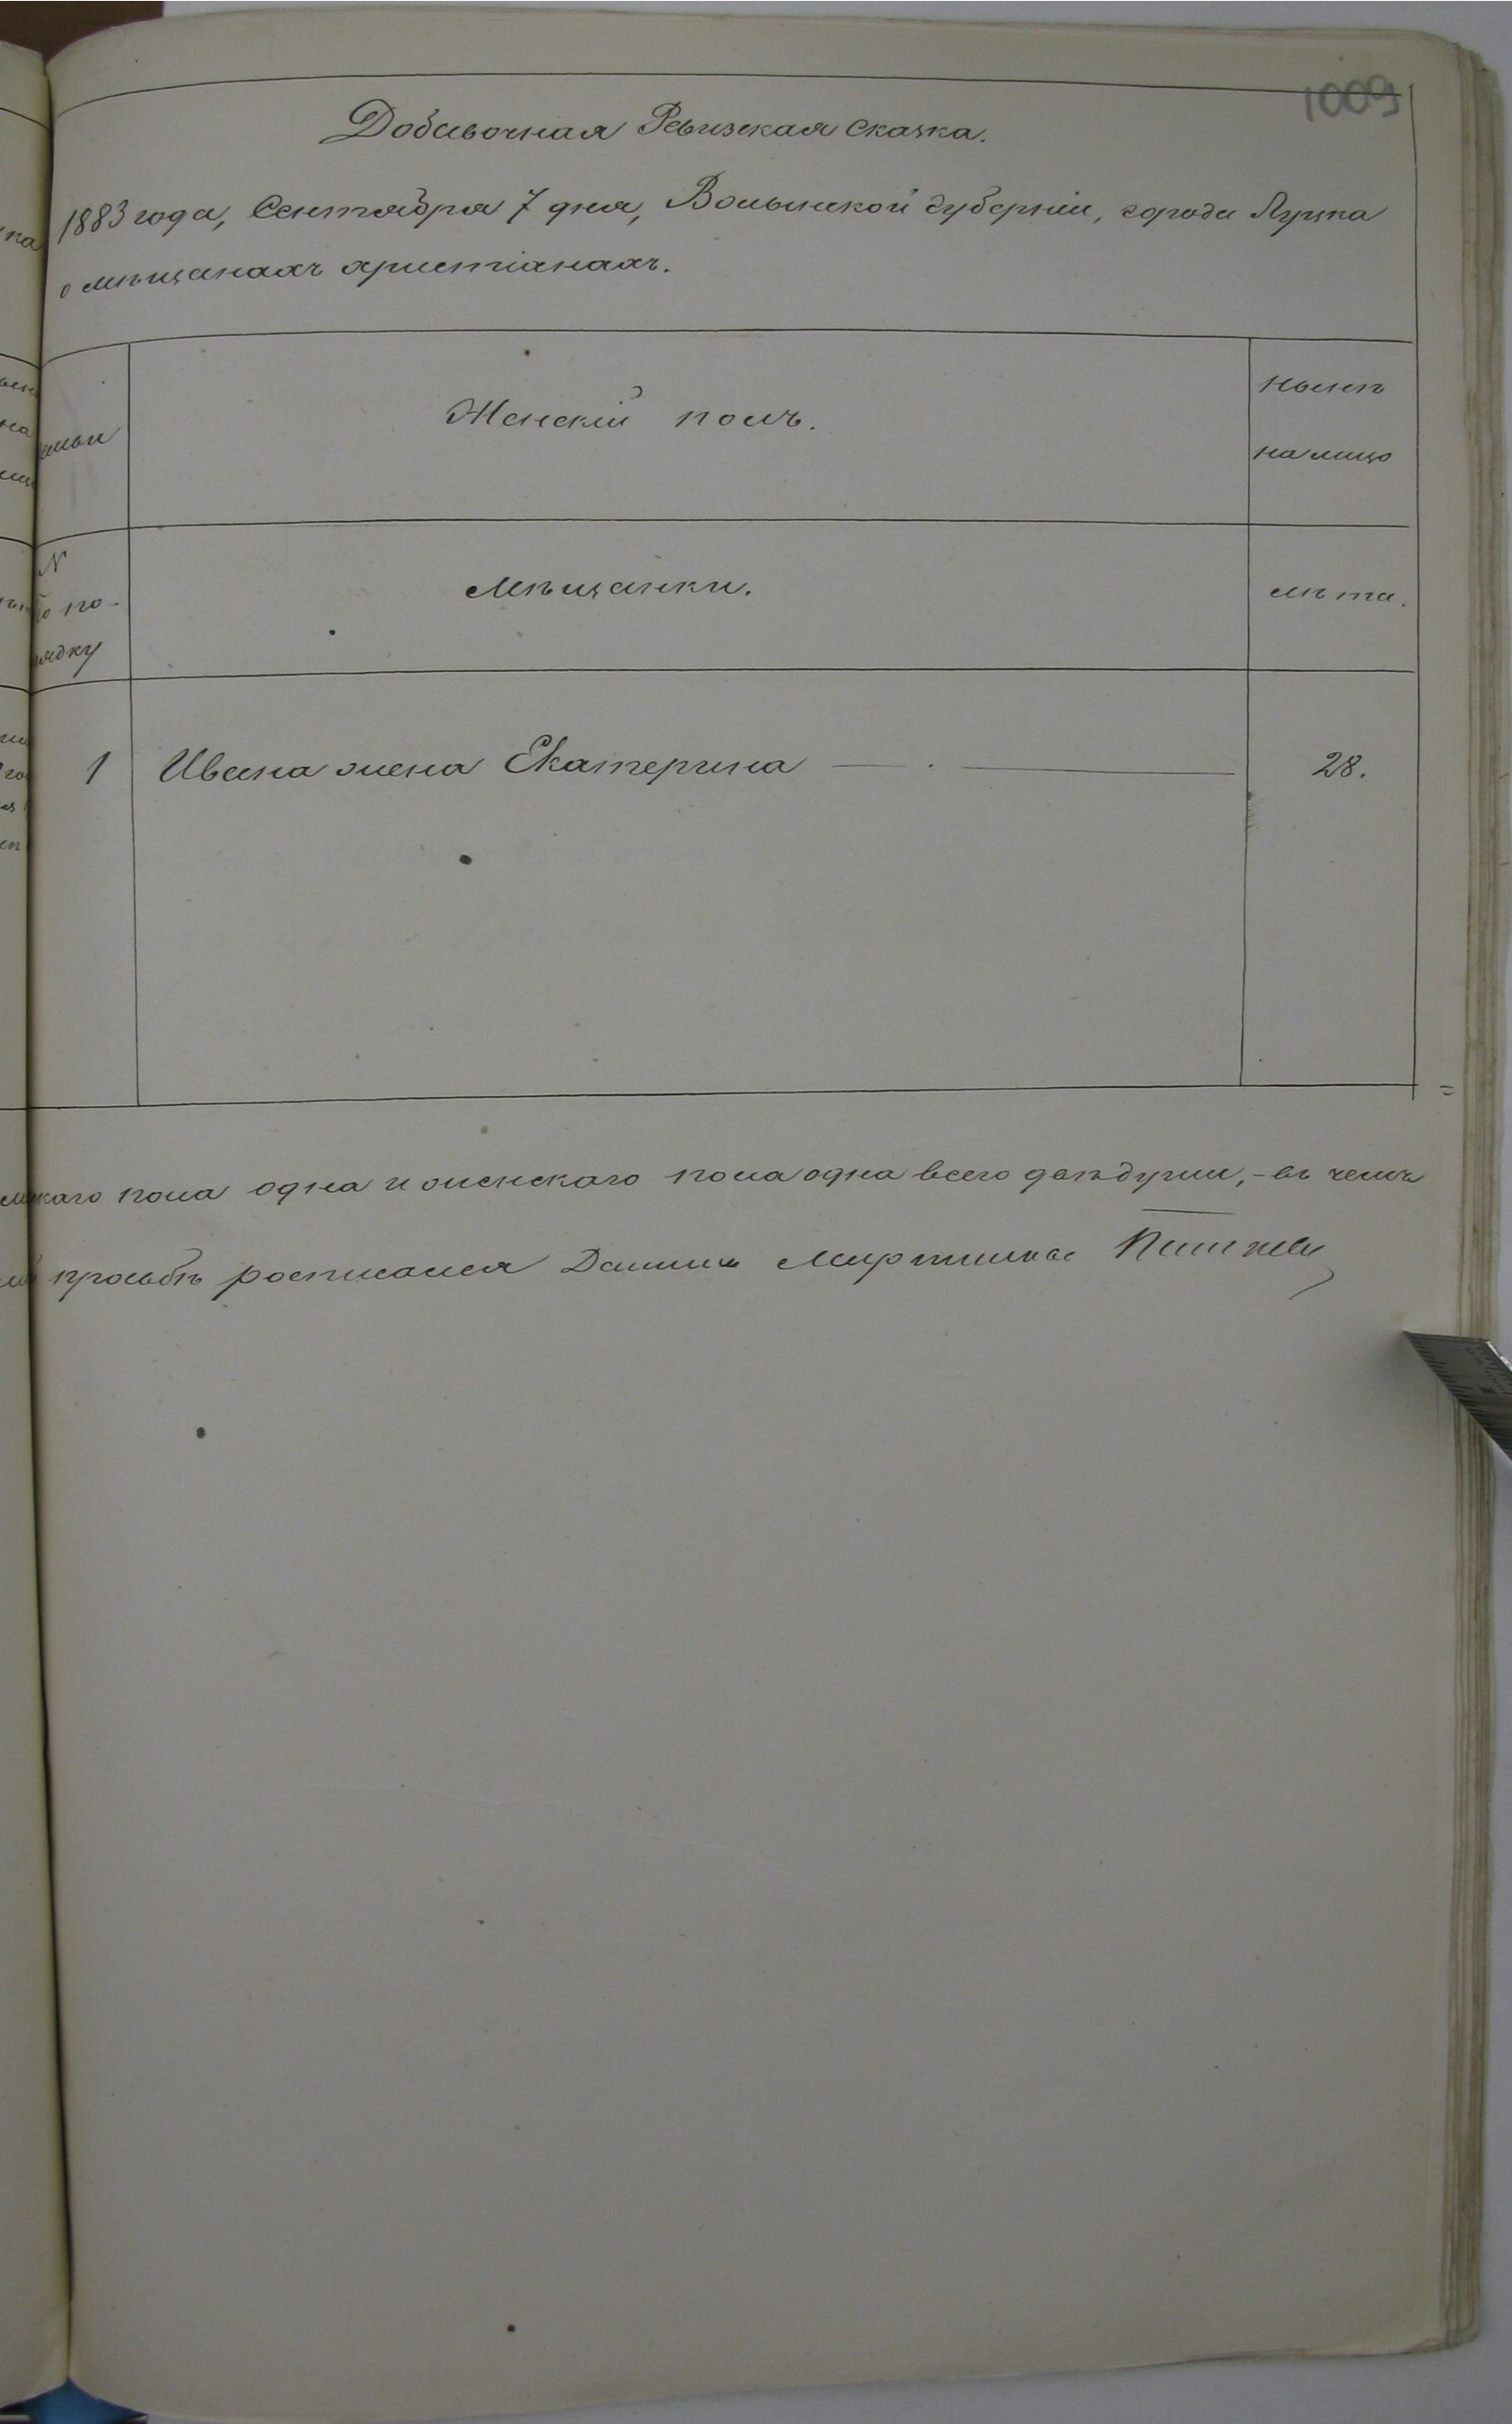 1009
Добавочная Ревизская сказка.
1883 года, Сентября 7 дня, Волынской губерніи, города Луцка
о мѣщанахъ христіанахъ.
Женскій полъ.
нынѣ
на лицо
N
по по-
рядку
Мѣщанки.
лѣта.
1 Ивана жена Екатерина 28.
пола одна и женскаго пола одна всего двѣ души, - въ чемъ
просьбѣ росписался